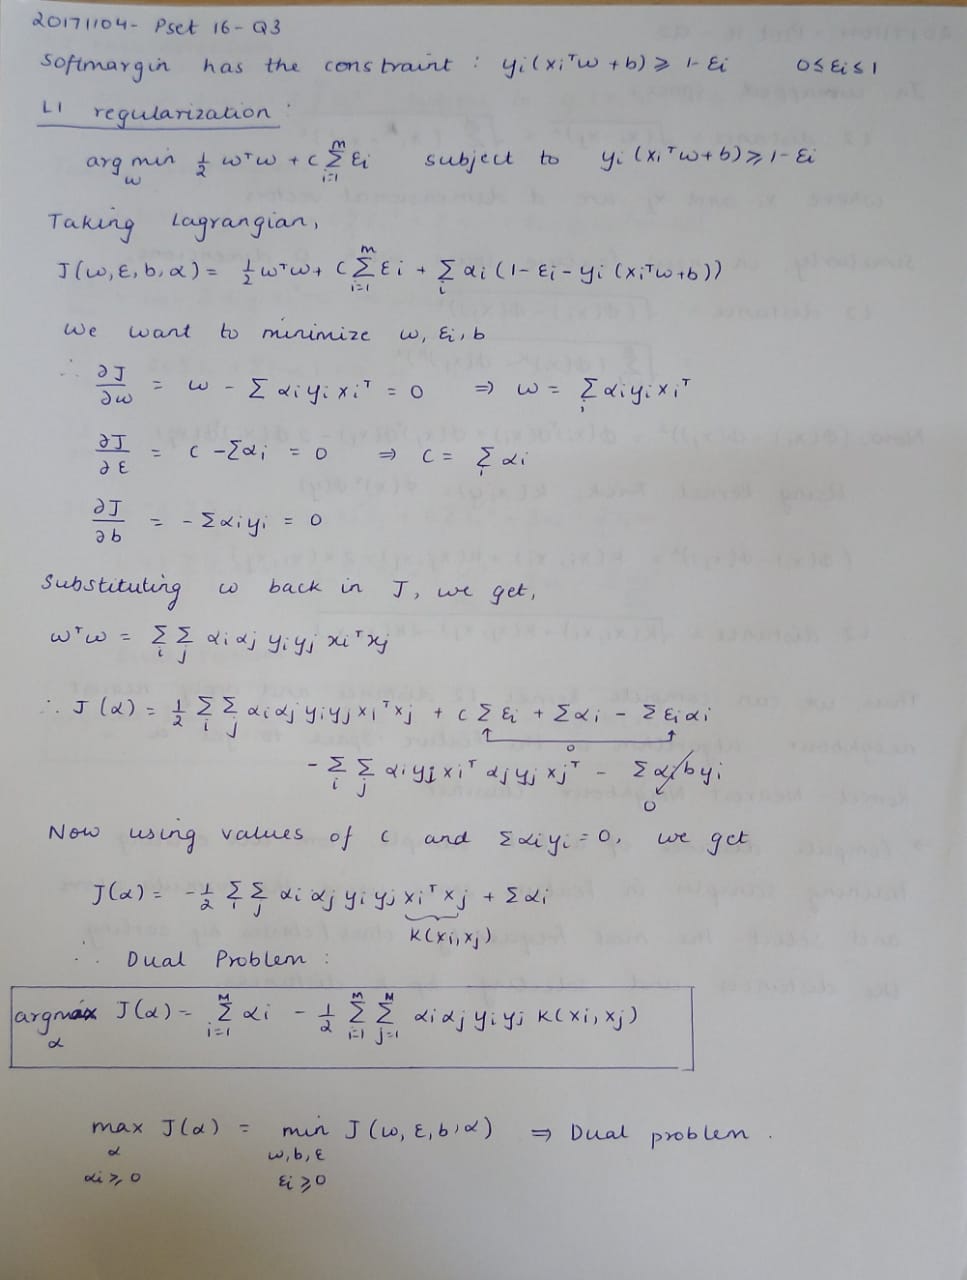 20171104- Pset 16- Q3
Softmargin has the constraint : yi(xiᵀw + b) ⩾ 1- εi 0≤εi≤1
L1 regularization :
arg min w ½ wᵀw + c Σ i=1 m εi subject to yi (xiᵀw+b) ⩾ 1- εi
Taking Lagrangian,
J(w, ε, b, α) = ½wᵀw + c Σ i=1 m εi + Σ i αi (1- εi - yi (xiᵀw+b))
We want to minimize w, εi, b
∴ ∂J/∂w = w - Σ αi yi xiᵀ = 0 ⇒ w = Σ i αi yi xiᵀ
∂J/∂ε = c - Σαi = 0 ⇒ c = Σ i αi
∂J/∂b = - Σαiyi = 0
Substituting w back in J, we get,
wᵀw = Σ i Σ j αi αj yi yj xiᵀxj
∴ J (α) = ½ Σ i Σ j αi αj yi yj xiᵀxj + c Σ εi + Σαi - Σεiαi
0
- Σ i Σ j αi yi xiᵀ αj yj xjᵀ - Σ αi b yi
0
Now using values of c and Σαiyi = 0, we get
J(α) = -½ Σ i Σ j αi αj yi yj xiᵀxj + Σαi
K(xi, xj)
∴ Dual Problem :
argmax α J(α) = Σ i=1 M αi - ½ Σ i=1 M Σ j=1 M αi αj yi yj K(xi, xj)
max J(α) = min J (w, ε, b, α) ⇒ Dual problem .
α w, b, ε
αi ⩾ 0 εi ⩾ 0